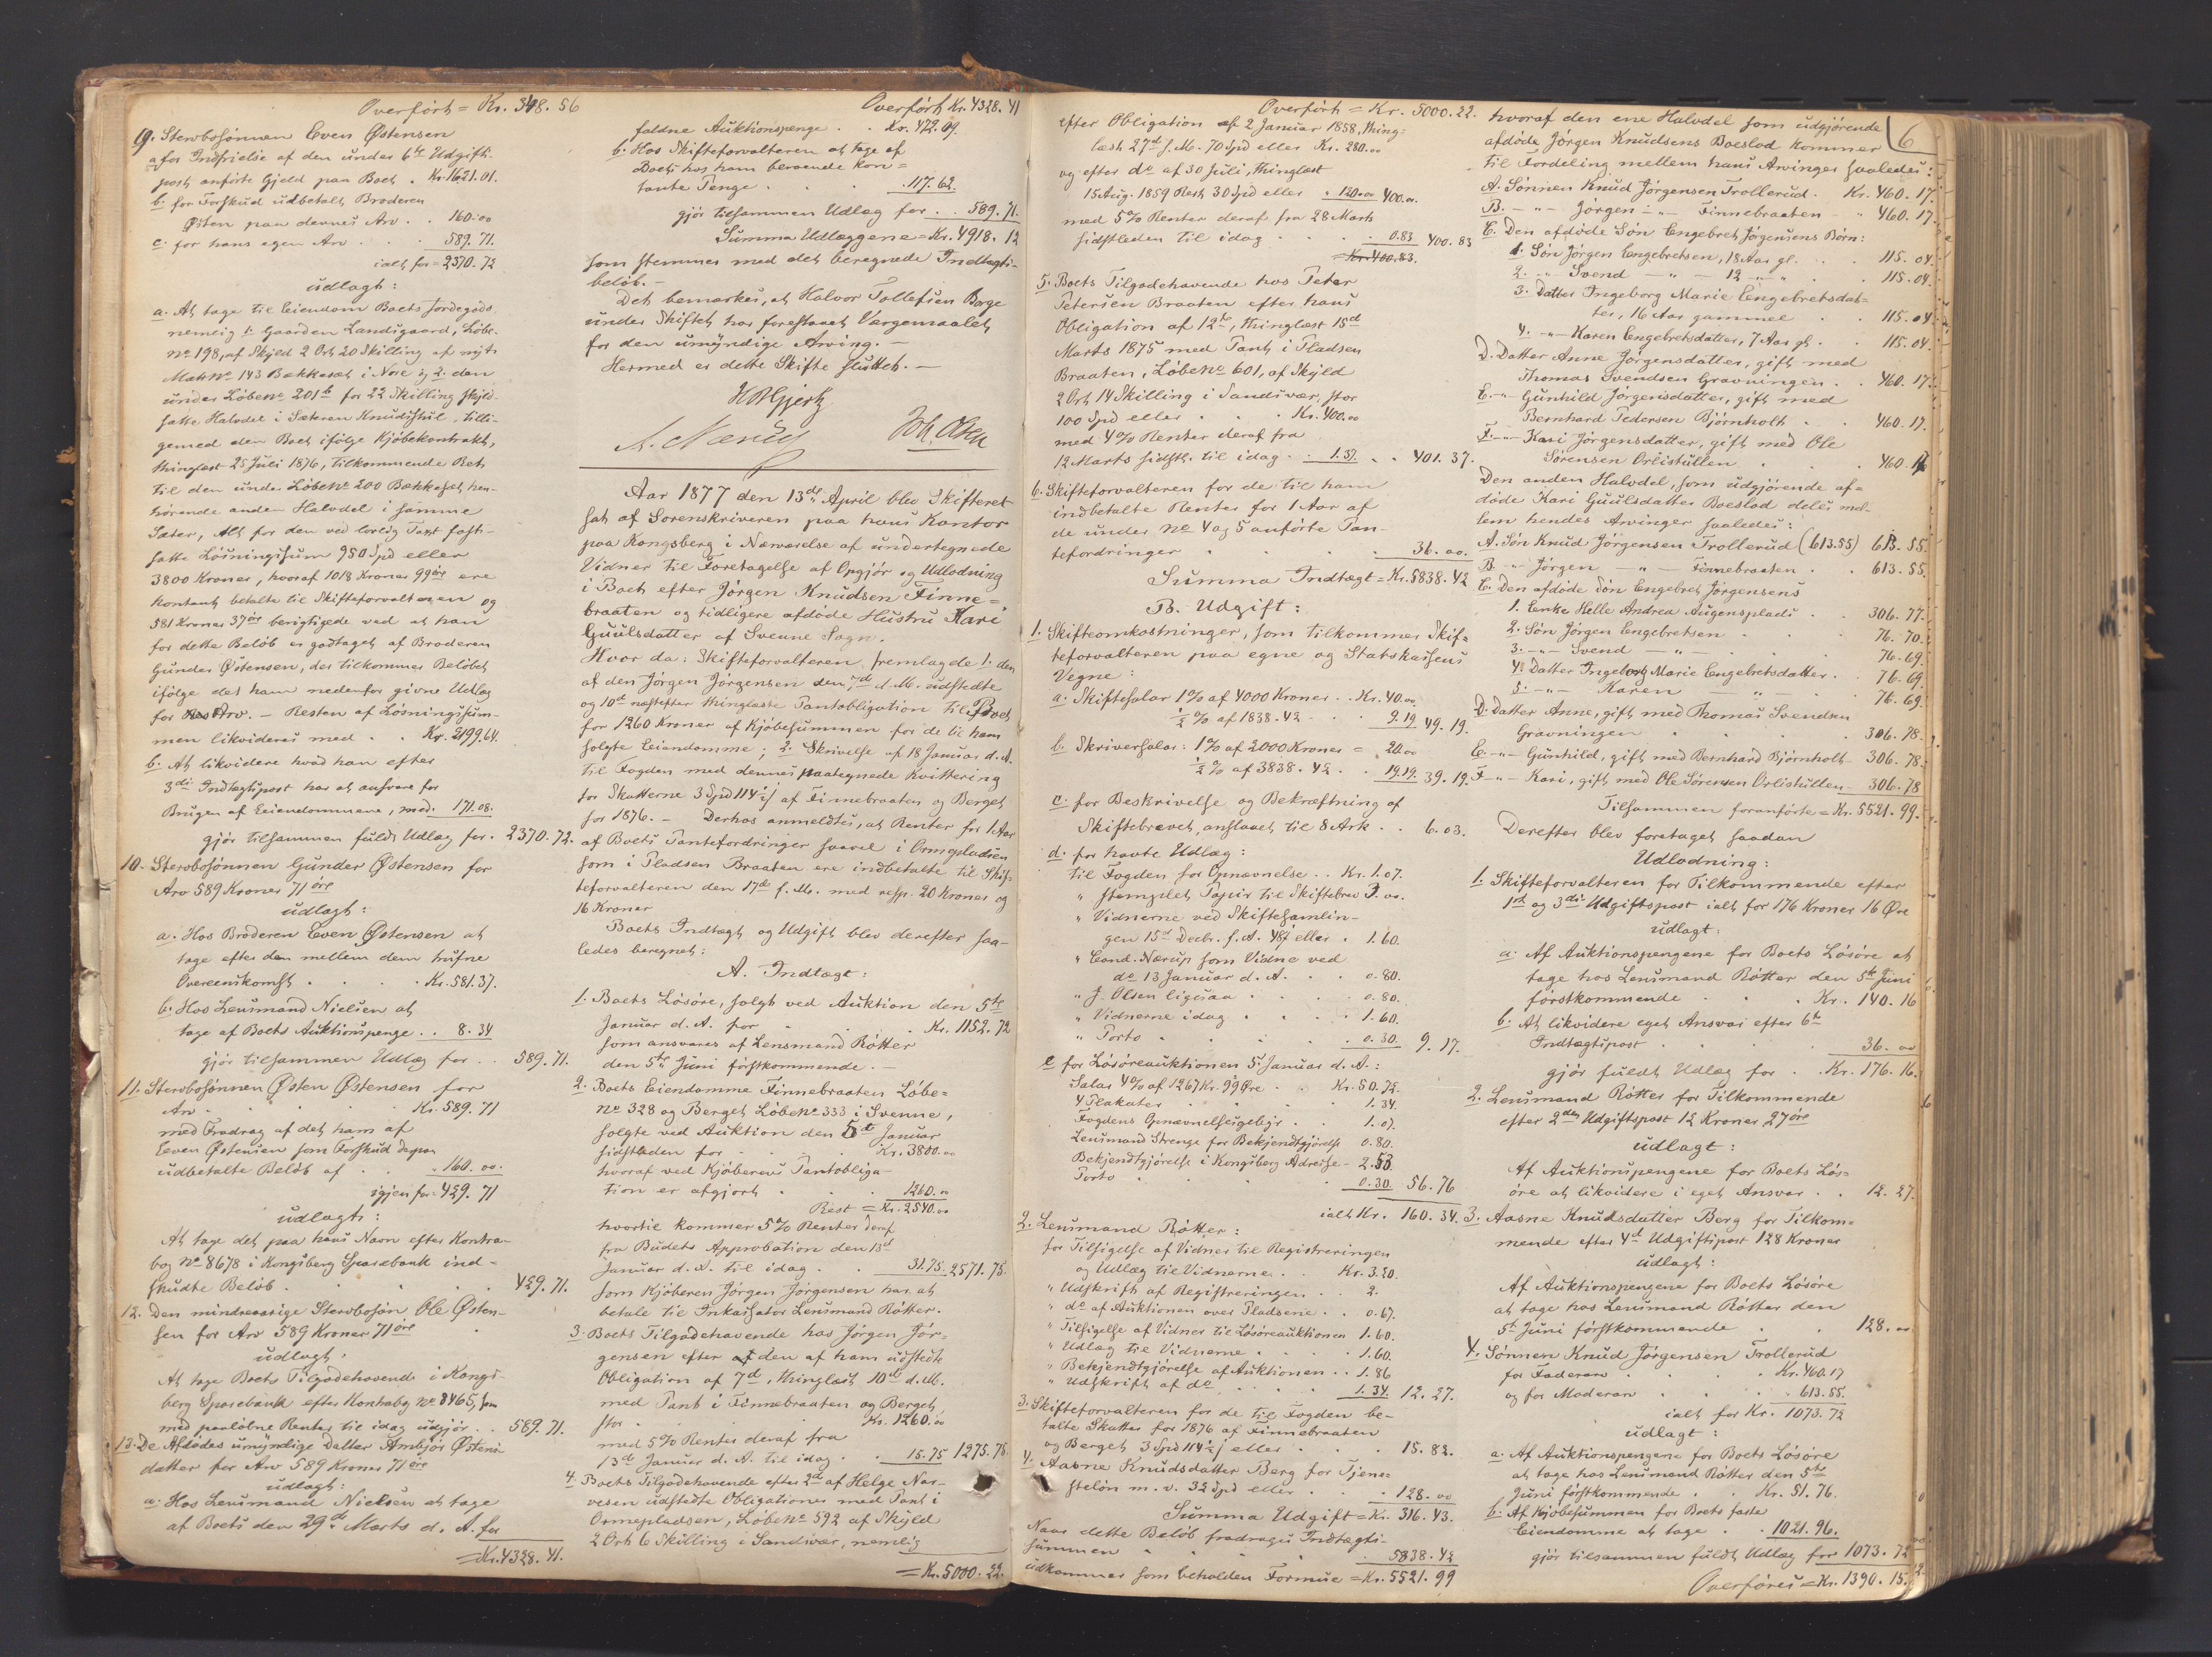 Overført = Kr. 348.56
9. Stervbosönnen Even Østensen
a for Indfrielse af den under 6te Udgifts-
post anførte Gjeld paa Boet . Kr. 1621.01.
b. for Forskud udbetalt Broderen
Østen paa dennes Arv . . 160.00
c. for hans egen Arv . . . 589.71.
ialt for = 2370.72
udlagt:
a. At tage til Eiendom Boets Jordegods
nemlig 1. Gaarden Landsgaard, Løbe-
No 198, af Skyld 2 Ort 20 Skilling af nyt
Matr No 143 Bækkesæt i Nore og 2. den
under Løbeno 201b for 22 Skilling skyld-
satte Halvdel i Sæteren Knudsstul, tilli-
gemed den Boet ifølge Kjøbekontrakt,
thinglæst 25 Juli 1876, tilkommende Ret
til den under Løbeno 200 Bækkesæt hen-
hørende anden Halvdel i samme
Sæter, Alt for den ved lovlig Taxt fast-
satte Løsningssum 950 Spd eller
3800 Kroner, hvoraf 1018 Kroner 99 øre ere
kontant betalte til Skifteforvalteren og
581 Kroner 37 øre berigtigede ved at han
for dette Beløb er godtaget af Broderen
Gunder Østensen, der tilkommer Beløbet
ifølge det ham nedenfor givne Udlæg
for Arv. — Resten af Løsningssum-
men likvideres med . . Kr. 2199.64.
b. At likvidere hvad han efter
3die Indtægtspost har at ansvare for
Brugen af Eiendommene, med. 171.08.
gjør tilsammen fuldt Udlæg for. 2370.72.
10. Stervbosönnen Gunder Østensen for
Arv 589 Kroner 71 øre
udlagt:
a. Hos Broderen Even Østensen at
tage efter den mellem dem trufne
Overeenskomst . . . . Kr. 581.37.
b. Hos Lensmand Nielsen at
tage af Boets Auktionspenge . . 8.34
gjør tilsammen Udlæg for . . 589.71.
11. Stervbosönnen Østen Østensen for
Arv . . . . Kr. 589.71
med Fradrag af det ham af
Even Østensen som Forskud derpaa
udbetalte Beløb af . . . 160.00.
igjen for = 429.71
udlagt:
At tage det paa hans Navn efter Kontra-
bog No 8678 i Kongsberg Sparebank ind-
skudte Beløb . . . . . 429.71.
12. Den mindreaarige Stervbosøn Ole Østen-
sen for Arv 589 Kroner 71 øre
udlagt.
At tage Boets Tilgodehavende i Kongs-
berg Sparebank efter Kontrabog No 8465, som
med paaløbne Renter til idag udgjør . . 589.71.
13. De Afdødes umyndige Datter Ambjør Østens-
datter for Arv 589 Kroner 71 øre
udlagt:
a. Hos Lensmand Nielsen at tage
af Boets den 29de Marts d. A. for
= Kr. 4328.41.
Overført Kr. 4328.41
faldne Auktionspenge . . Kr. 472.09.
b. Hos Skifteforvalteren at tage af
Boets hos ham beroende kon=
tante Penge . . . . 117.62.
gjør tilsammen Udlæg for . . 589.71.
Summa Udlæggene = Kr. 4918.12
som stemmer med det beregnede Indtægts-
beløb. —
Det bemærkes, at Halvor Tollefsen Borge
under Skiftet har forestaaet Værgemaalet
for den umyndige Arving. —
Hermed er dette Skifte sluttet. —
Hjertz
A. Nærup Joh. Olsen
Aar 1877 den 13de April blev Skifteret
sat af Sorenskriveren paa hans Kontor
paa Kongsberg i Nærværelse af undertegnede
Vidner til Foretagelse af Opgjør og Udlodning
i Boet efter Jørgen Knudsen Finne=
braaten og tidligere afdøde Hustru Kari
Guulsdatter af Svenne Sogn.
Hvor da: Skifteforvalteren fremlagde 1. den
af den Jørgen Jørgensen den 7de d. M. udstedte
og 10de næstefter thinglæste Pantobligation til Boet
for 1260 Kroner af Kjøbesummen for de til ham
solgte Eiendomme; 2. Skrivelse af 18 Januar d. A.
til Fogden med dennes paategnede Kvittering
for Skatterne 3 Spd 114½ s af Finnebraaten og Berget
for 1876. — Derhos anmeldtes, at Renter for 1 Aar
af Boets Pantefordringer saavel i Ormepladsen
som i Pladsen Braaten ere indbetalte til Skif-
teforvalteren den 17de f. M. med resp. 20 Kroner og
16 Kroner
Boets Indtægt og Udgift blev derefter saa-
ledes beregnet:
A. Indtægt:
1. Boets Løsøre, solgt ved Auktion den 5te
Januar d. A. for . . . Kr. 1152.72
som ansvares af Lensmand Røtter
den 5te Juni førstkommende. —
2. Boets Eiendomme Finnebraaten Løbe=
No 328 og Berget Løbeno 333 i Svenne,
solgte ved Auktion den 5te Januar
sidstleden for . . . Kr. 3800.00
hvoraf ved Kjøberens Pantobliga-
tion er afgjort . . . 1260.00
Rest = Kr. 2540.00
hvortil kommer 5% Renter deraf
fra Budets Approbation den 13de
Januar d. A. til idag . . 31.75. 2571.75.
som Kjøberen Jørgen Jørgensen har at
betale til Inkassator Lensmand Røtter.
3. Boets Tilgodehavende hos Jørgen Jør-
gensen efter den af ham udstedte
Obligation af 7de, thinglæst 10de d. M.
med Pant i Finnebraaten og Berget,
stor . . . . Kr. 1260.00
med 5% Renter deraf fra
13de Januar d. A. til idag . . 15.75 1275.75.
4. Boets Tilgodehavende efter 2de af Helge Nar-
vesen udstedte Obligationer med Pant i
Ormepladsen, Løbeno 592 af Skyld
2 Ort 6 Skilling i Sandsvær, nemlig
= Kr. 5000.22.
Overført = Kr. 5000.22.
efter Obligation af 2 Januar 1858, thing=
læst 27de s. M. 70 Spd eller Kr. 280.00
og efter do af 30 Juli, thinglæst
15 Aug. 1859 Rest 30 Spd eller . 120.00 400.00.
med 5% Renter deraf fra 28 Marts
sidstleden til idag . . . . 0.83 400.83
= Kr. 400.83.
5. Boets Tilgodehavende hos Peter
Petersen Braaten efter hans
Obligation af 12te, thinglæst 15de
Marts 1875 med Pant i Pladsen
Braaten, Løbeno 601, af Skyld
2 Ort 14 Skilling i Sandsvær, stor
100 Spd eller . . . Kr. 400.00
med 4% Renter deraf fra
12 Marts sidstl. til idag . . 1.37. . . 401.37.
6. Skifteforvalteren for de til ham
indbetalte Renter for 1 Aar af
de under No 4 og 5 anførte Pan-
tefordringer . . . . 36.00.
Summa Indtægt = Kr. 5838.42
B. Udgift:
1. Skifteomkostninger, som tilkommer Skif=
teforvalteren paa egne og Statskassens
Vegne:
a. Skiftesalær 1% af 4000 Kroner . Kr. 40.00
½% af 1838.42 . . 9.19 49.19.
b. Skriversalær: 1% af 2000 Kroner = 20.00
½% af 3838.42 . . 19.19. 39.19.
c. for Beskrivelse og Bekræftning af
Skiftebrevet, anslaaet til 8 Ark . . 6.03.
d. for havte Udlæg:
til Fogden for Opnævnelse . . Kr. 1.07.
" stemplet Papir til Skiftebrev 3.00.
" Vidnerne ved Skiftesamlin-
gen 15de Decbr. f. A. 48 s eller . 1.60.
" Cand. Nærup som Vidne ved
do 13 Januar d. A. . . 0.80.
" J. Olsen ligesaa . . . 0.80.
" Vidnerne idag . . . . 1.60.
" Porto . . . . . 0.30. 9.17.
e for Løsøreauktionen 5 Januar d. A.:
Salær 4% af 1267 Kr. 99 Øre . . Kr. 50.72.
4 Plakater . . . . 1.34.
Fogdens Opnævnelsesgebyr . . 1.07.
Lensmand Strenge for Bekjendtgjørelse 0.80.
Bekjendtgjørelse i Kongsberg Adresse - 2.53.
Porto . . . . 0.30. 56.76
ialt Kr. 160.34.
2. Lensmand Røtter:
for Tilsigelse af Vidner til Registreringen
og Udlæg til Vidnerne . . Kr. 3.20.
" Udskrift af Registreringen . . 2.
" do af Auktionen over Pladsene . . 0.67.
" Tilsigelse af Vidner til Løsøreauktionen 1.60.
" Udlæg til Vidnerne . . . . 1.60.
" Bekjendtgjørelse af Auktionen . . 1.86
" Udskrift af do . . . . 1.34. 12.27.
3. Skifteforvalteren for de til Fogden be-
talte Skatter for 1876 af Finnebraaten
og Berget 3 Spd 114½ s eller . . . 15.82.
4. Aasne Knudsdatter Berg for Tjene=
stelön m. v. 32 Spd eller . . . 128.00
Summa Udgift = Kr. 316.43.
Naar dette Beløb fradrages Indtægts-
summen . . . . . 5838.42
udkommer som beholden Formue = Kr. 5521.99
6
hvoraf den ene Halvdel som udgjørende
afdøde Jørgen Knudsens Boeslod kommer
til Fordeling mellem hans Arvinger saaledes:
A. Sønnen Knud Jørgensen Trollerud . Kr. 460.17.
B. — " — Jørgen — " — Finnebraaten — " 460.17.
C. Den afdøde Søn Engebret Jørgensens Børn:
1. Søn Jørgen Engebretsen, 18 Aar gl. . . 115.04.
2. — " — Svend — " — 12 — " — . 115.04.
3. Datter Ingeborg Marie Engebretsdat=
ter, 16 Aar gammel . . 115.04
4. — " — Karen Engebretsdatter, 7 Aar gl. . 115.04.
D. Datter Anne Jørgensdatter, gift med
Thomas Svendsen Gravningen . . 460.17.
E. — " — Gunhild Jørgensdatter, gift med
Bernhard Pedersen Bjørnholt . . 460.17.
F. — " — Kari Jørgensdatter, gift med Ole
Sørensen Orlistullen . . . 460.16
Den anden Halvdel, som udgjørende af=
døde Kari Guulsdatters Boeslod deles mel-
lem hendes Arvinger saaledes:
A. Søn Knud Jørgensen Trollerud (613.55) 613.55.
B. — " — Jørgen — " — Finnebraaten . . 613.55.
C. Den afdøde Søn Engebret Jørgensens
1. Enke Helle Andrea Augensplads . . 306.77.
2. Søn Jørgen Engebretsen . . . 76.70.
3. — " — Svend — " — . . . 76.69.
4. Datter Ingeborg Marie Engebretsdatter . . 76.69.
5. — " — Karen — " — . . 76.69.
D. Datter Anne, gift med Thomas Svendsen
Gravningen . . . . 306.78.
E. — " — Gunhild, gift med Bernhard Bjørnholt - 306.78.
F — " — Kari, gift med Ole Sørensen Orlistullen — 306.78
Tilsammen foranførte = Kr. 5521.99.
Derefter blev foretaget saadan
Udlodning:
1. Skifteforvalteren for Tilkommende efter
1ste og 3die Udgiftspost ialt for 176 Kroner 16 Øre
udlagt:
a. Af Auktionspengene for Boets Løsøre at
tage hos Lensmand Røtter den 5te Juni
førstkommende . . . Kr. 140.16
b. At likvidere eget Ansvar efter 6te
Indtægtspost . . . . 36.00
gjør fuldt Udlæg for . . Kr. 176.16.
2. Lensmand Røtter for Tilkommende
efter 2den Udgiftspost 12 Kroner 27 øre
udlagt:
Af Auktionspengene for Boets Løs=
øre at likvidere i eget Ansvar . . 12.27.
3. Aasne Knudsdatter Berg for Tilkom=
mende efter 4de Udgiftspost 128 Kroner
udlagt:
Af Auktionspengene for Boets Løsøre
at tage hos Lensmand Røtter den
5te Juni førstkommende . . . 128.00
4. Sønnen Knud Jørgensen Trollerud
for Faderarv . . . . Kr. 460.17
og for Moderarv . . . . 613.55.
ialt for Kr. 1073.72
udlagt:
a. Af Auktionspengene for Boets Løsøre
at tage hos Lensmand Røtter den 5te
Juni førstkommende . . Kr. 51.76.
b. Af Kjøbesummen for Boets faste
Eiendomme at tage . . 1021.96.
gjør tilsammen fuldt Udlæg for 1073.72
Overføres = Kr. 1390.15.